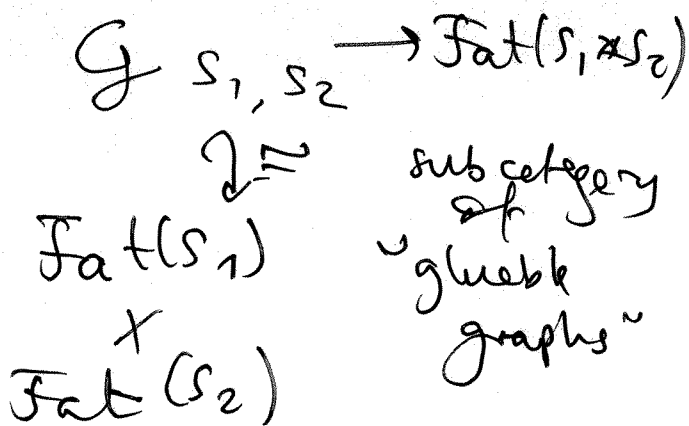 G S1, S2 → Fat(S1 * S2)
↪ ≃
Fat(S1)
×
Fat(S2)
subcategory
of
"glueble
graphs"